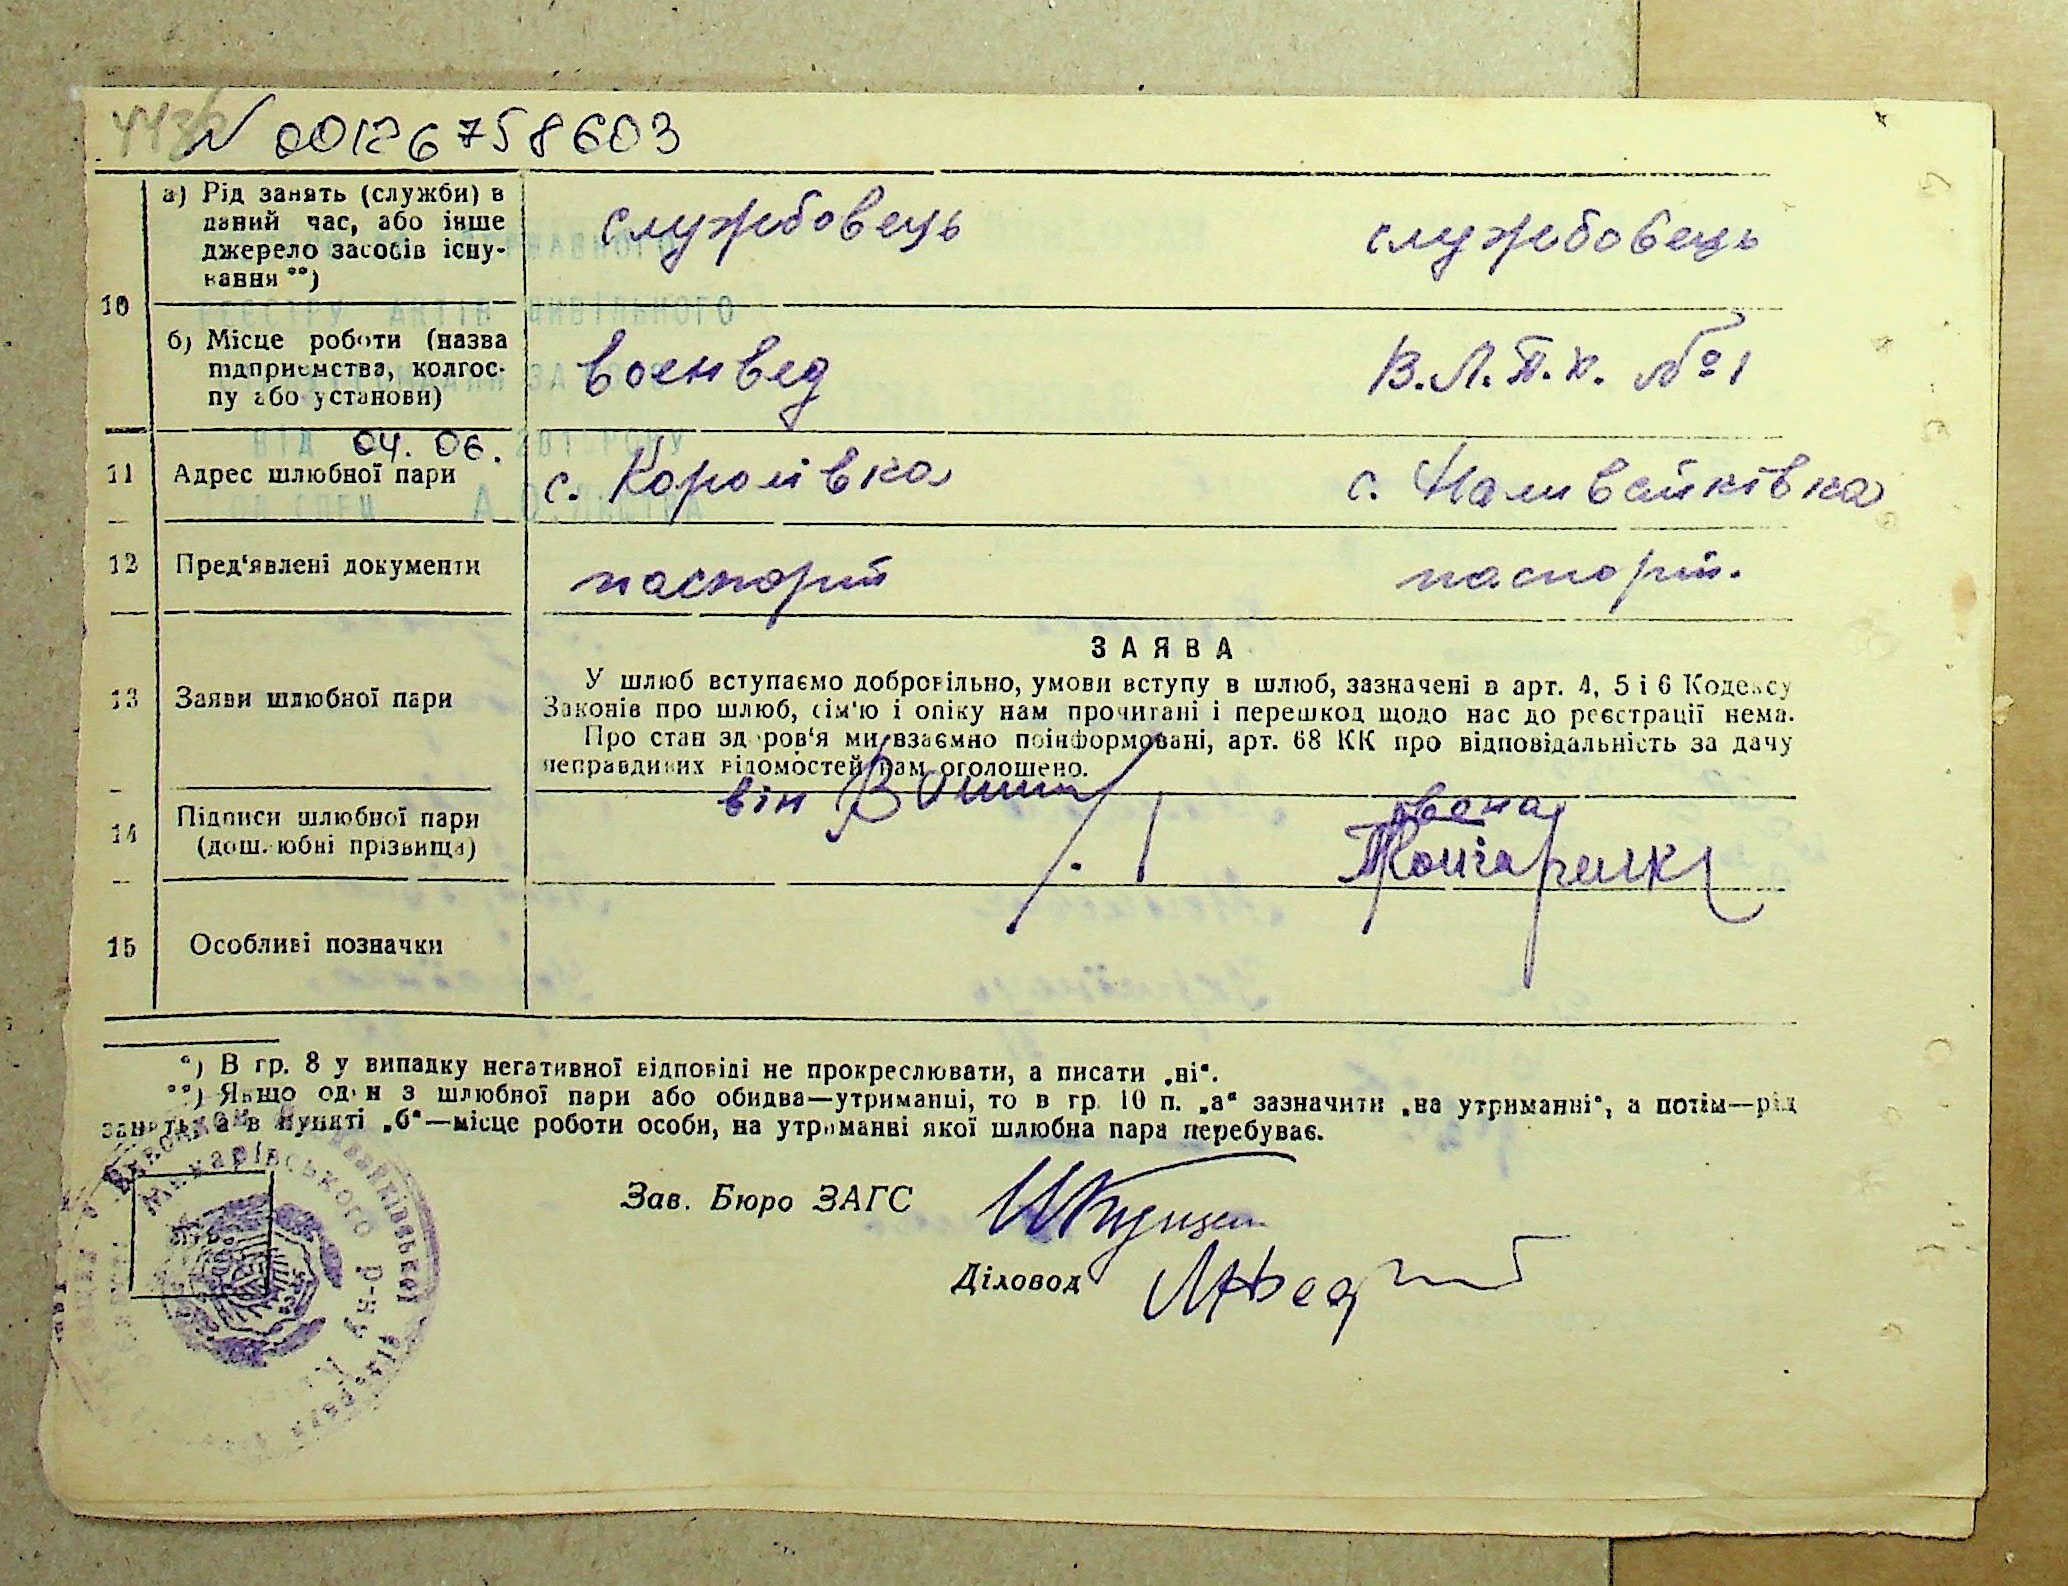 N 00126758603
10
а) Рід занять (служби) в
даний час, або інше
джерело засобів існу-
вання **)
службовець
службовець
РЕЄСТРУ АКТІВ ЦИВІЛЬНОГО
б) Місце роботи (назва
підприємства, колгос-
пу або установи)
военвед
В.Л.П.К. №1
ВІД 04. 06.
11
Адрес шлюбної пари
с. Королівка
с. Наливайківка
12
Пред'явлені документи
паспорт
паспорт.
13
Заяви шлюбної пари
ЗАЯВА
У шлюб вступаємо добровільно, умови вступу в шлюб, зазначені в арт. 4, 5 і 6 Кодексу
Законів про шлюб, сім'ю і опіку нам прочитані і перешкод щодо нас до реєстрації нема.
Про стан здоров'я ми взаємно поінформовані, арт. 68 КК про відповідальність за дачу
неправдивих відомостей нам оголошено.
14
Підписи шлюбної пари
(дошлюбні прізвища)
він
вона
Гончаренко
15
Особливі позначки
*) В гр. 8 у випадку негативної відповіді не прокреслювати, а писати „ні“.
**) Якщо один з шлюбної пари або обидва—утриманці, то в гр. 10 п. „а“ зазначити „на утриманні“, а потім—рід
занять, а в пункті „б“—місце роботи особи, на утриманні якої шлюбна пара перебуває.
Макарівського р-ну
Зав. Бюро ЗАГС
Діловод